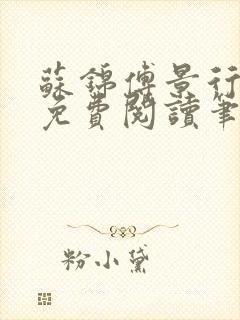 蘇錦傅景行
免費閱讀筆
粉小黛